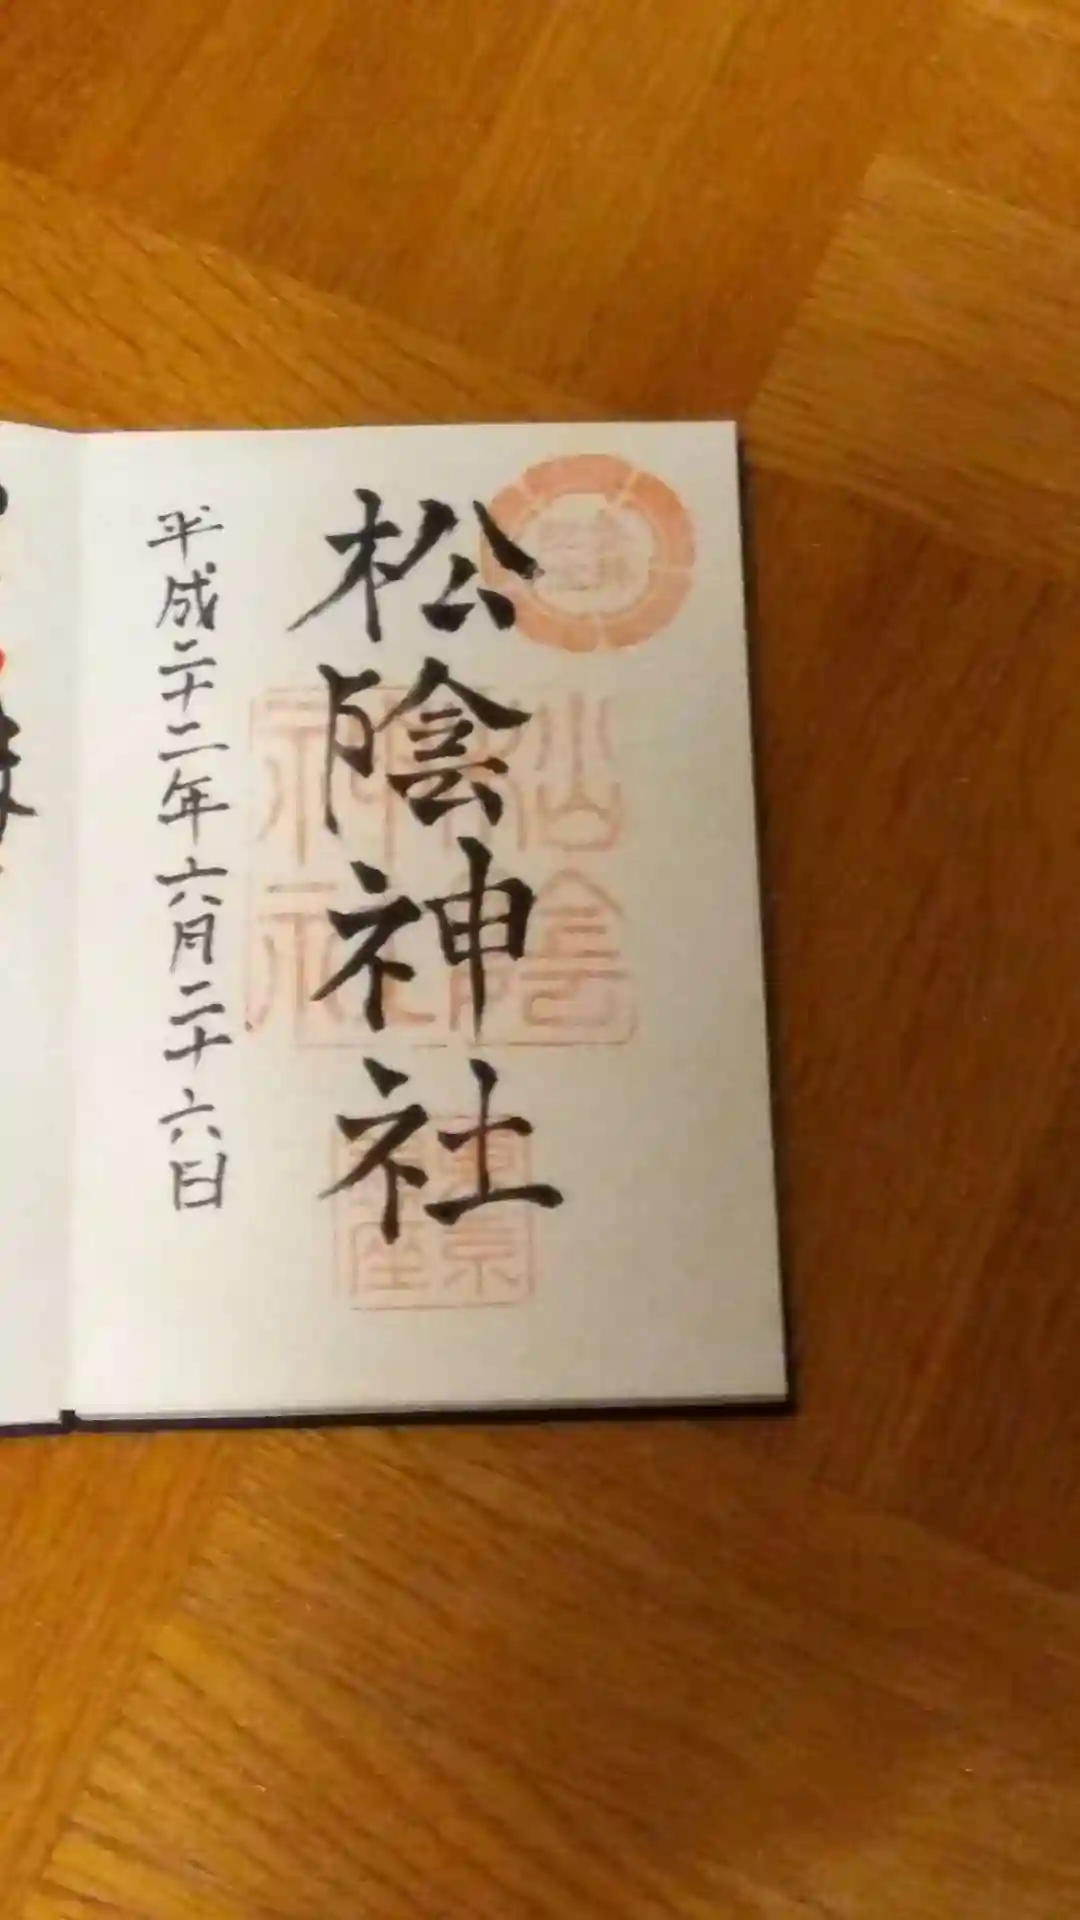 松陰神社
平成二十二年六月二十六日
松陰
神社
東京